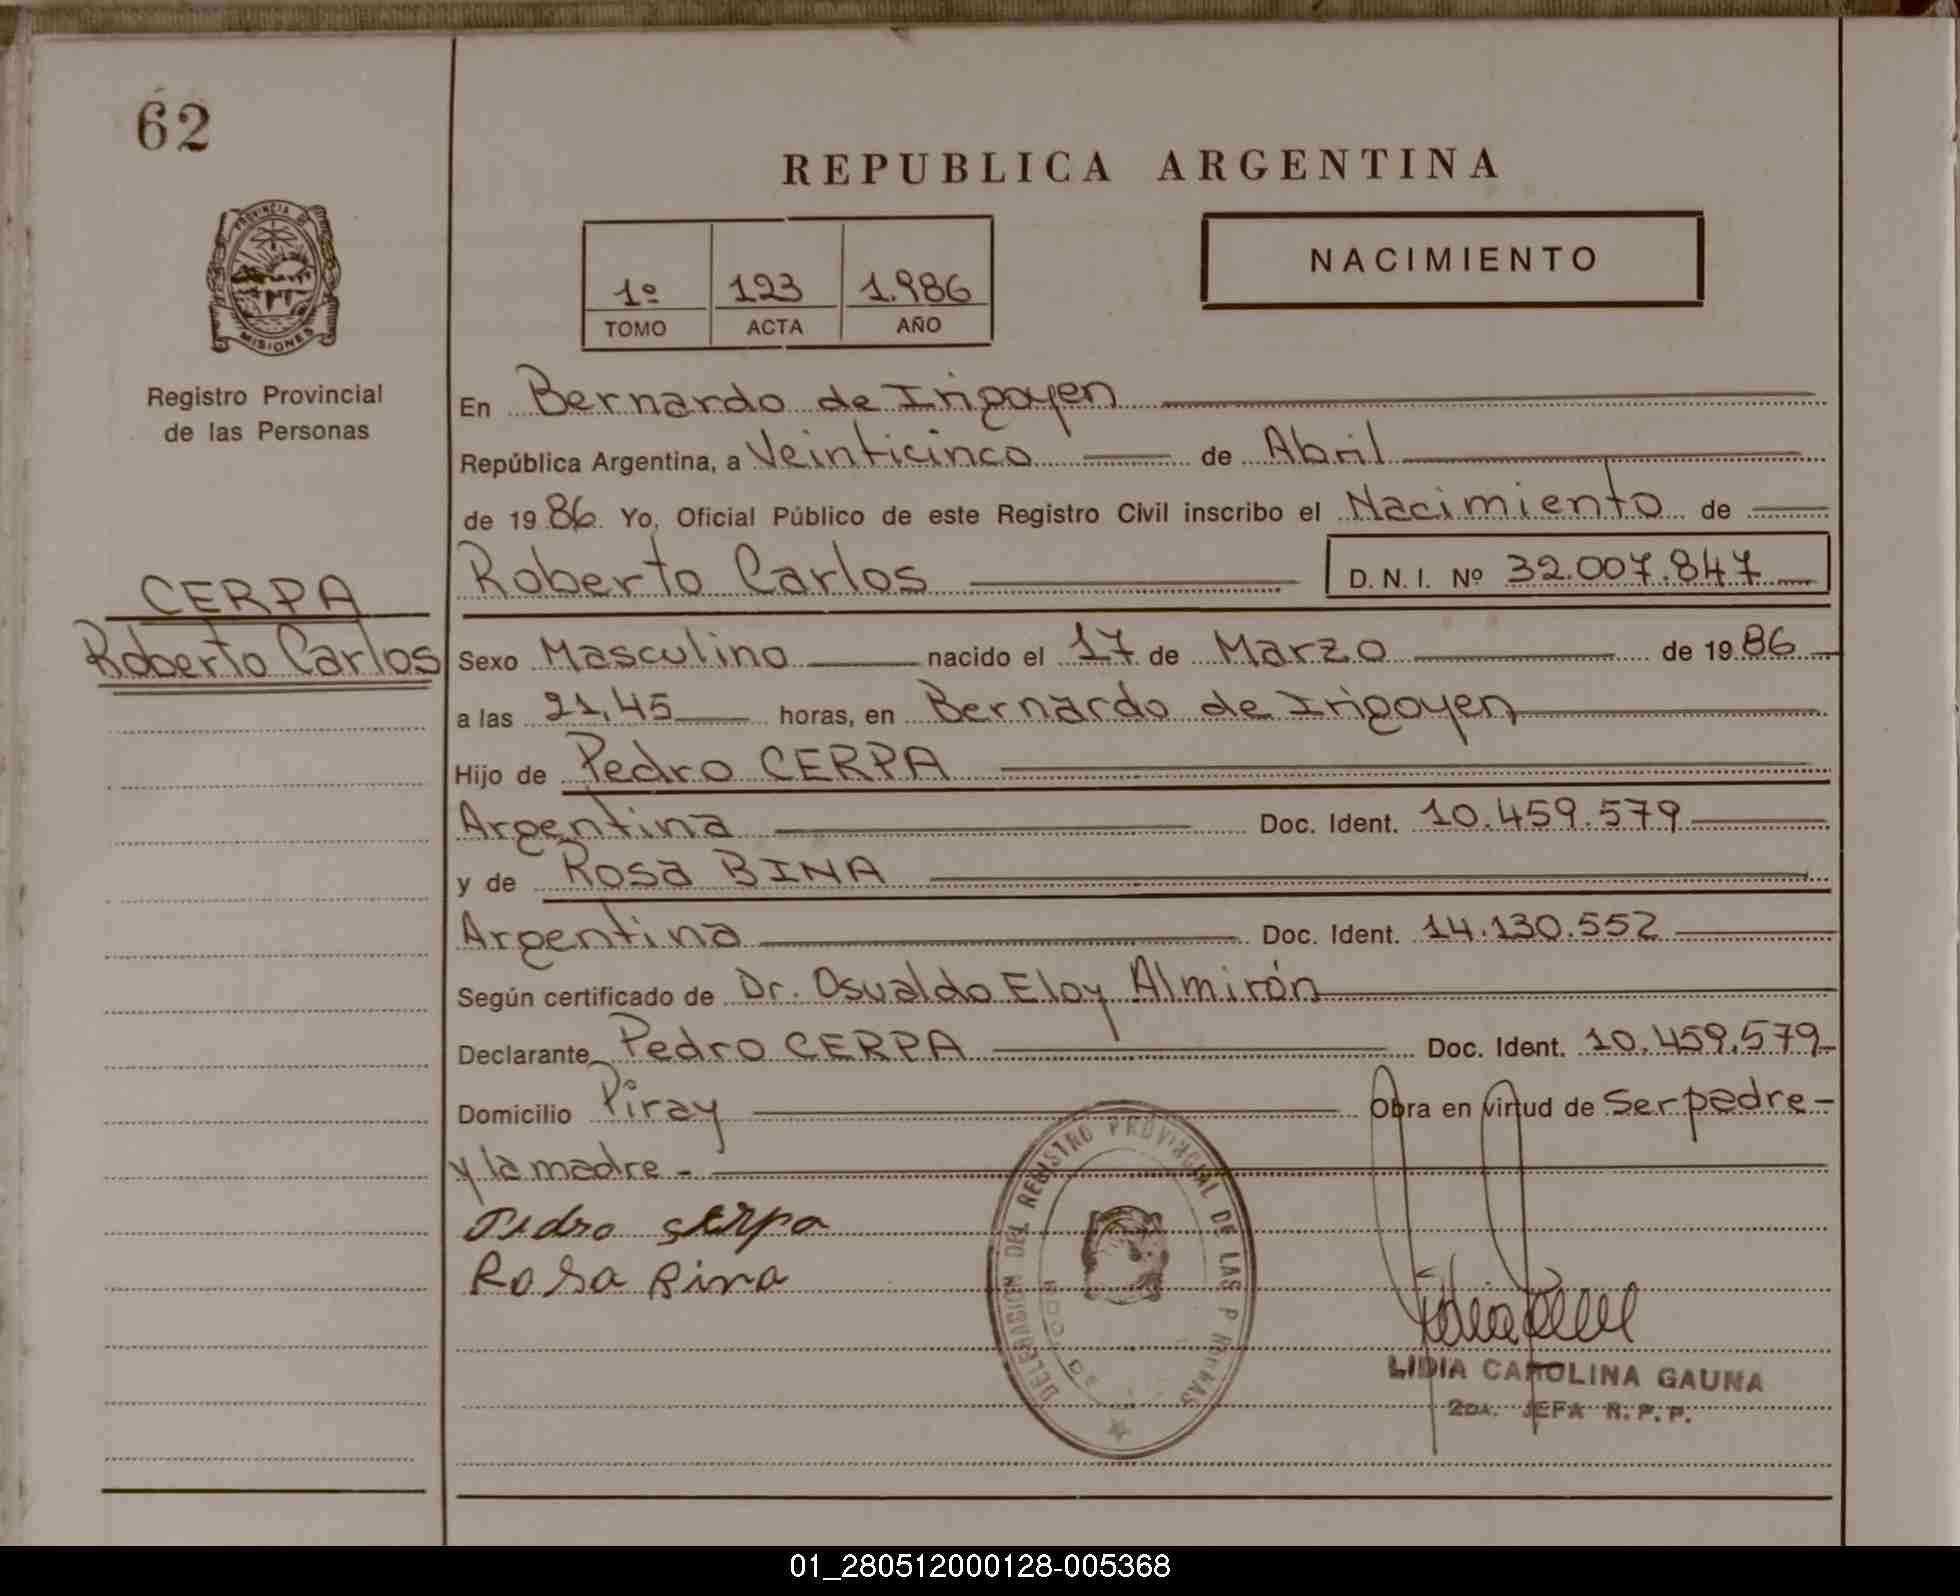 62
REPUBLICA ARGENTINA
PROVINCIA DE
MISIONES
Registro Provincial
de las Personas
1º 123 1.986
TOMO ACTA AÑO
NACIMIENTO
En Bernardo de Irigoyen
República Argentina, a Veinticinco de Abril
de 1986. Yo, Oficial Público de este Registro Civil inscribo el Nacimiento de
Roberto Carlos D.N.I. Nº 32.007.847
CERPA
Roberto Carlos
Sexo Masculino nacido el 17 de Marzo de 1986
a las 21,45 horas, en Bernardo de Irigoyen
Hijo de Pedro CERPA
Argentina Doc. Ident. 10.459.579
y de Rosa BINA
Argentina Doc. Ident. 14.130.552
Según certificado de Dr. Osvaldo Eloy Almirón
Declarante Pedro CERPA Doc. Ident. 10.459.579
Domicilio Piray Obra en virtud de Ser padre -
y la madre -
Pedro serpa
Rosa Bina
DELEGACION DEL REGISTRO PROVINCIAL DE LAS P
LIDIA CAROLINA GAUNA
2DA. JEFA R.P.P.
01_280512000128-005368